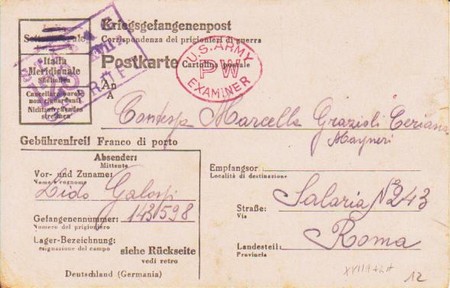 Kriegsgefangenenpost
Corrispondenza dei prigionieri di guerra
Postkarte Cartolina postale
U.S. ARMY
PW
EXAMINER
Italia
Meridionale
An
A
Contessa Marcella Grazioli
Gebührenfrei! Franco di porto
Absender:
Mittente
Vor- und Zuname:
Nome e cognome
Dido
Gefangenennummer: 143/598
Numero del prigioniero
Lager-Bezeichnung:
siehe Rückseite
vedi retro
Deutschland (Germania)
Empfangsort:
Località di destinazione
Salaria N° 243
Straße:
Via
Roma
Landesteil:
Provincia
12